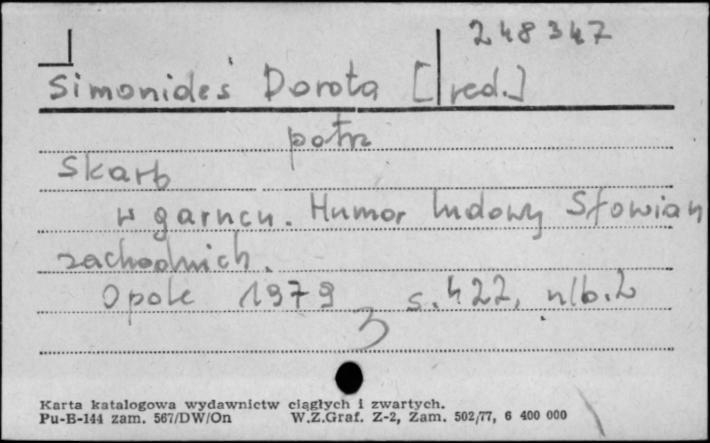 248347
Simonides Dorota [red.]
patrz
Skarb
w garncu. Humor ludowy Słowian
zachodnich.
Opole 1979 s. 422, nlb. 2
3
Karta katalogowa wydawnictw ciągłych i zwartych.
Pu-B-144 zam. 567/DW/On W.Z.Graf. Z-2, Zam. 502/77, 6 400 000